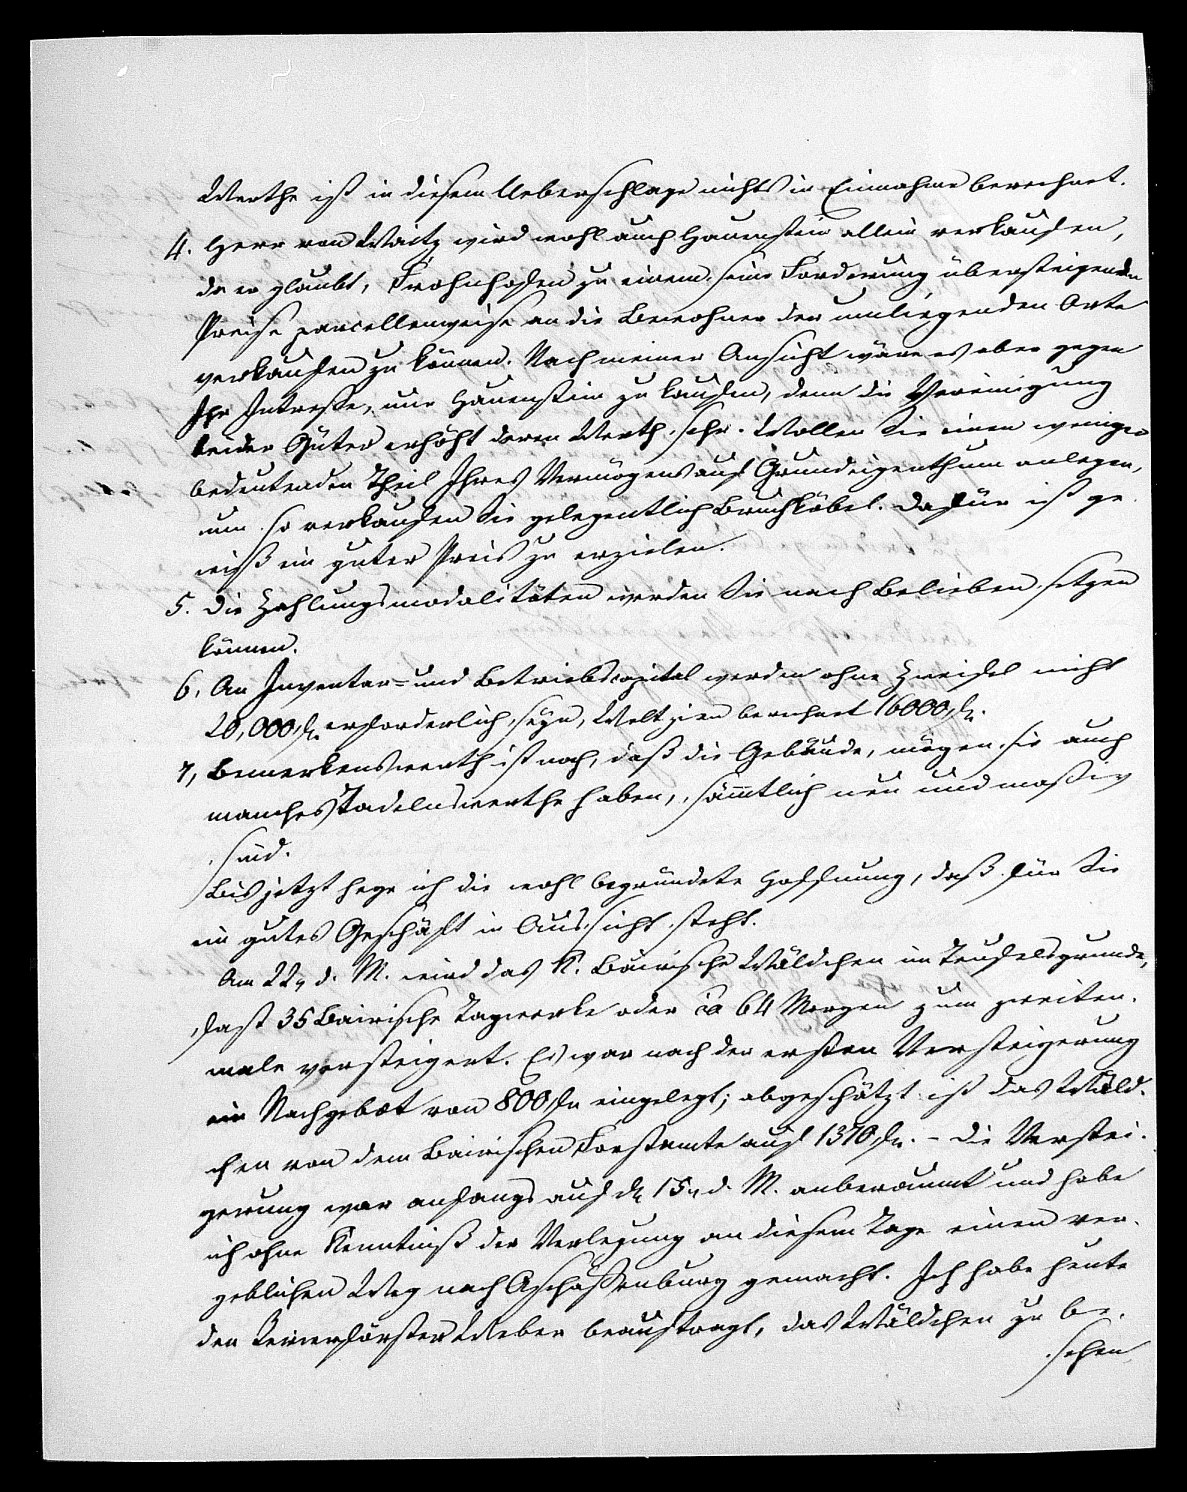 Werthe ist in diesem Ueberschlage nichts in Einnahme berechnet.
4. Herr von Waitz wird wohl auch Hauenstein allein verkaufen,
da er glaubt, Frohnhofen zu einem seine Forderung übersteigenden
Preise parcellenweise an die Bewohner der umliegenden Orte
verkaufen zu können. Nach meiner Ansicht wäre es aber gegen
Ihr Interesse, nur Hauenstein zu kaufen, denn die Vereinigung
beider Güter erhöht deren Werth sehr. Wollen Sie einen weniger
bedeutenden Theil Ihres Vermögens auf Grundeigenthum anlegen,
nun so verkaufen Sie gelegentlich Bruchköbel. Dafür ist ge-
wiß ein guter Preis zu erzielen.
5. Die Zahlungsmodalitäten werden Sie nach Belieben setzen
können.
6, An Inventar= und Betriebscapital werden ohne Zweifel nicht
20,000 fl. erforderlich seyn, Weltzien berechnet 16000 fl.
7, Bemerkenswerth ist noch, daß die Gebäude, mögen sie auch
manches Tadelnswerthe haben, sämtlich neu und massiv
sind.
Bis jetzt hege ich die wohl begründete Hoffnung, daß für Sie
ein gutes Geschäft in Aussicht steht.
Am 22, d. M. wird das K. Bairische Wäldchen im Teufelsgrunde,
fast 35 Bairische Tagwerke oder ca 64 Morgen zum zweiten-
male versteigert. Es war nach der ersten Versteigerung
ein Nachgebot von 800 fl. eingelegt; abgeschätzt ist das Wäld-
chen von dem Bairischen Forstamte auf 1370 fl. - Die Verstei-
gerung war anfangs auf d. 15, d. M. anberaumt und habe
ich ohne Kenntniß der Verlegung an diesem Tage einen ver-
geblichen Weg nach Aschaffenburg gemacht. Ich habe heute
den Revierförster Weber beauftragt, das Wäldchen zu be-
sehen